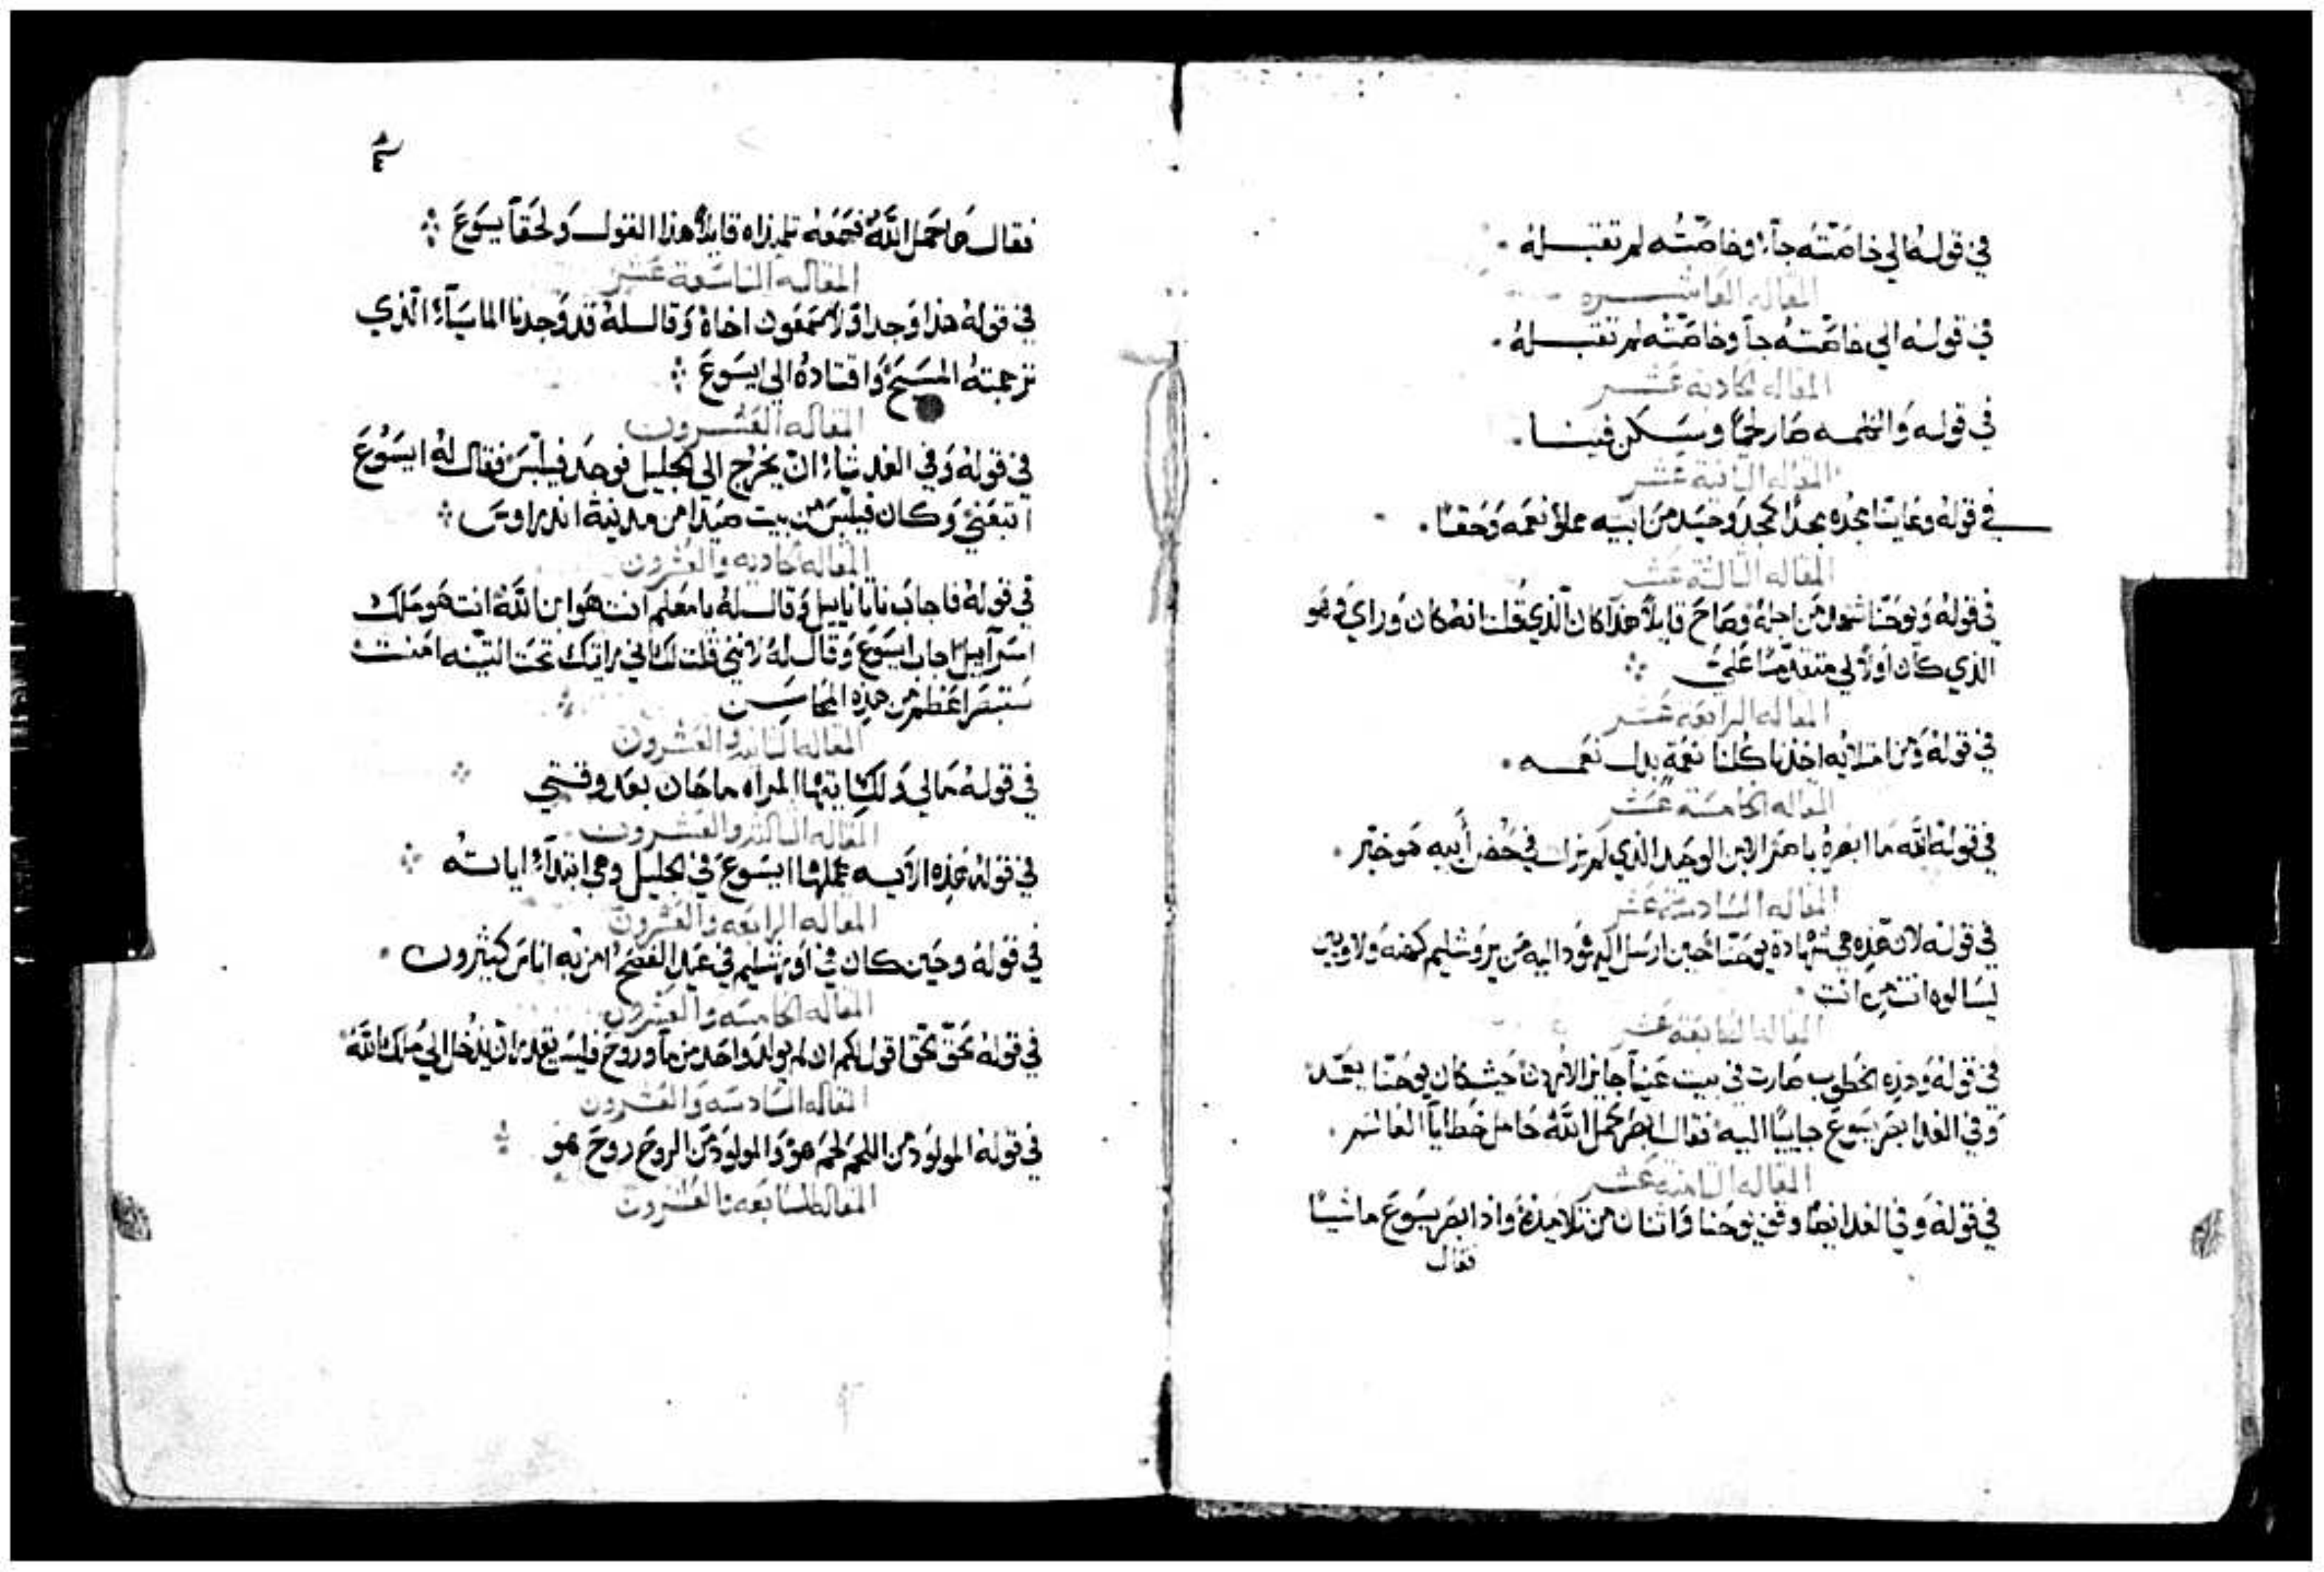 في قوله الي خاصته جاء وخاصته لم تقبله
المقاله العاشره
في قوله الي خاصته جا وخاصته لم تقبله
المقاله الحاديه عشر
في قوله والكلمه صار لحمًا وسكن فينا
المقاله الثانيه عشر
في قوله وعاينا مجده مجدًا كمجد وحيد من ابيه مملؤ نعمه وحقًا
المقاله الثالثة عشر
في قوله ويوحنا شهد من اجله وصاح قايلاً هذا كان الذي قلت انه كان وراي فهو
الذي كان اولاً لي متقدمًا علي
المقاله الرابعه عشر
في قوله ومن امتلايه اخذنا كلنا نعمة بدل نعمه
المقاله الخامسة عشر
في قوله الله ما ابصره باصر الابن الوحيد الذي لم يزل في حضن أبيه هو خبر
المقاله السادسة عشر
في قوله لان هذه هي شهادة يوحنا حين ارسل اليهود اليه من يروشليم كهنه ولاويين
ليسالوه انت من انت
المقاله السابعة عشر
في قوله وهذه الخطوب صارت في بيت عنيا جايز الاردن حيث كان يوحنا يعمد
وفي الغد ابصر يسوع جاييًا اليه فقال ابصر حمل الله حامل خطايا العالم
المقاله الثامنة عشر
في قوله وفي الغد ايضا وقف يوحنا واثنان من تلاميذه واذ ابصر يسوع ماشيًا
فقال
فقال ها حمل الله فسمعه تلميذاه قايلاً هذا القول ولحقا يسوع
المقاله التاسعة عشر
في قوله هذا وجد اولا سمعون اخاه وقال له قد وجدنا الماسياء الذي
ترجمته المسيح واقتاده الي ايسوع
المقاله العشرون
في قوله وفي الغد شاء ان يخرج الي الجليل فوجد فيلبس فقال له ايسوع
اتبعني وكان فيلبس من بيت صيدا من مدنية اندراوس
المقاله الحاديه والعشرون
في قوله فاجاب ناثاناييل وقال له يا معلم انت هو ابن الله انت هو ملك
اسراييل اجاب ايسوع وقال له لانني قلت لك اني رايتك تحت التينه امنت
ستبصر اعظم من هذه المحاسن
المقاله الثانيه والعشرون
في قوله ما لي ولك ايتها المراه ما حان بعد وقتي
المقاله الثالثه والعشرون
في قوله هذه الايه عملها ايسوع في الجليل وهي ابتداء اياته
المقاله الرابعه والعشرون
في قوله وحين كان في اورشليم في عيد الفصح امن به اناس كثيرون
المقاله الخامسه والعشرون
في قوله بحق بحق اقول لكم ان لم يولد واحد من ما وروح فليس يقدر ان يدخل الي ملك الله
المقاله السادسه والعشرون
في قوله المولود من اللحم لحم هو والمولود من الروح روح هو
المقاله السابعه والعشرون